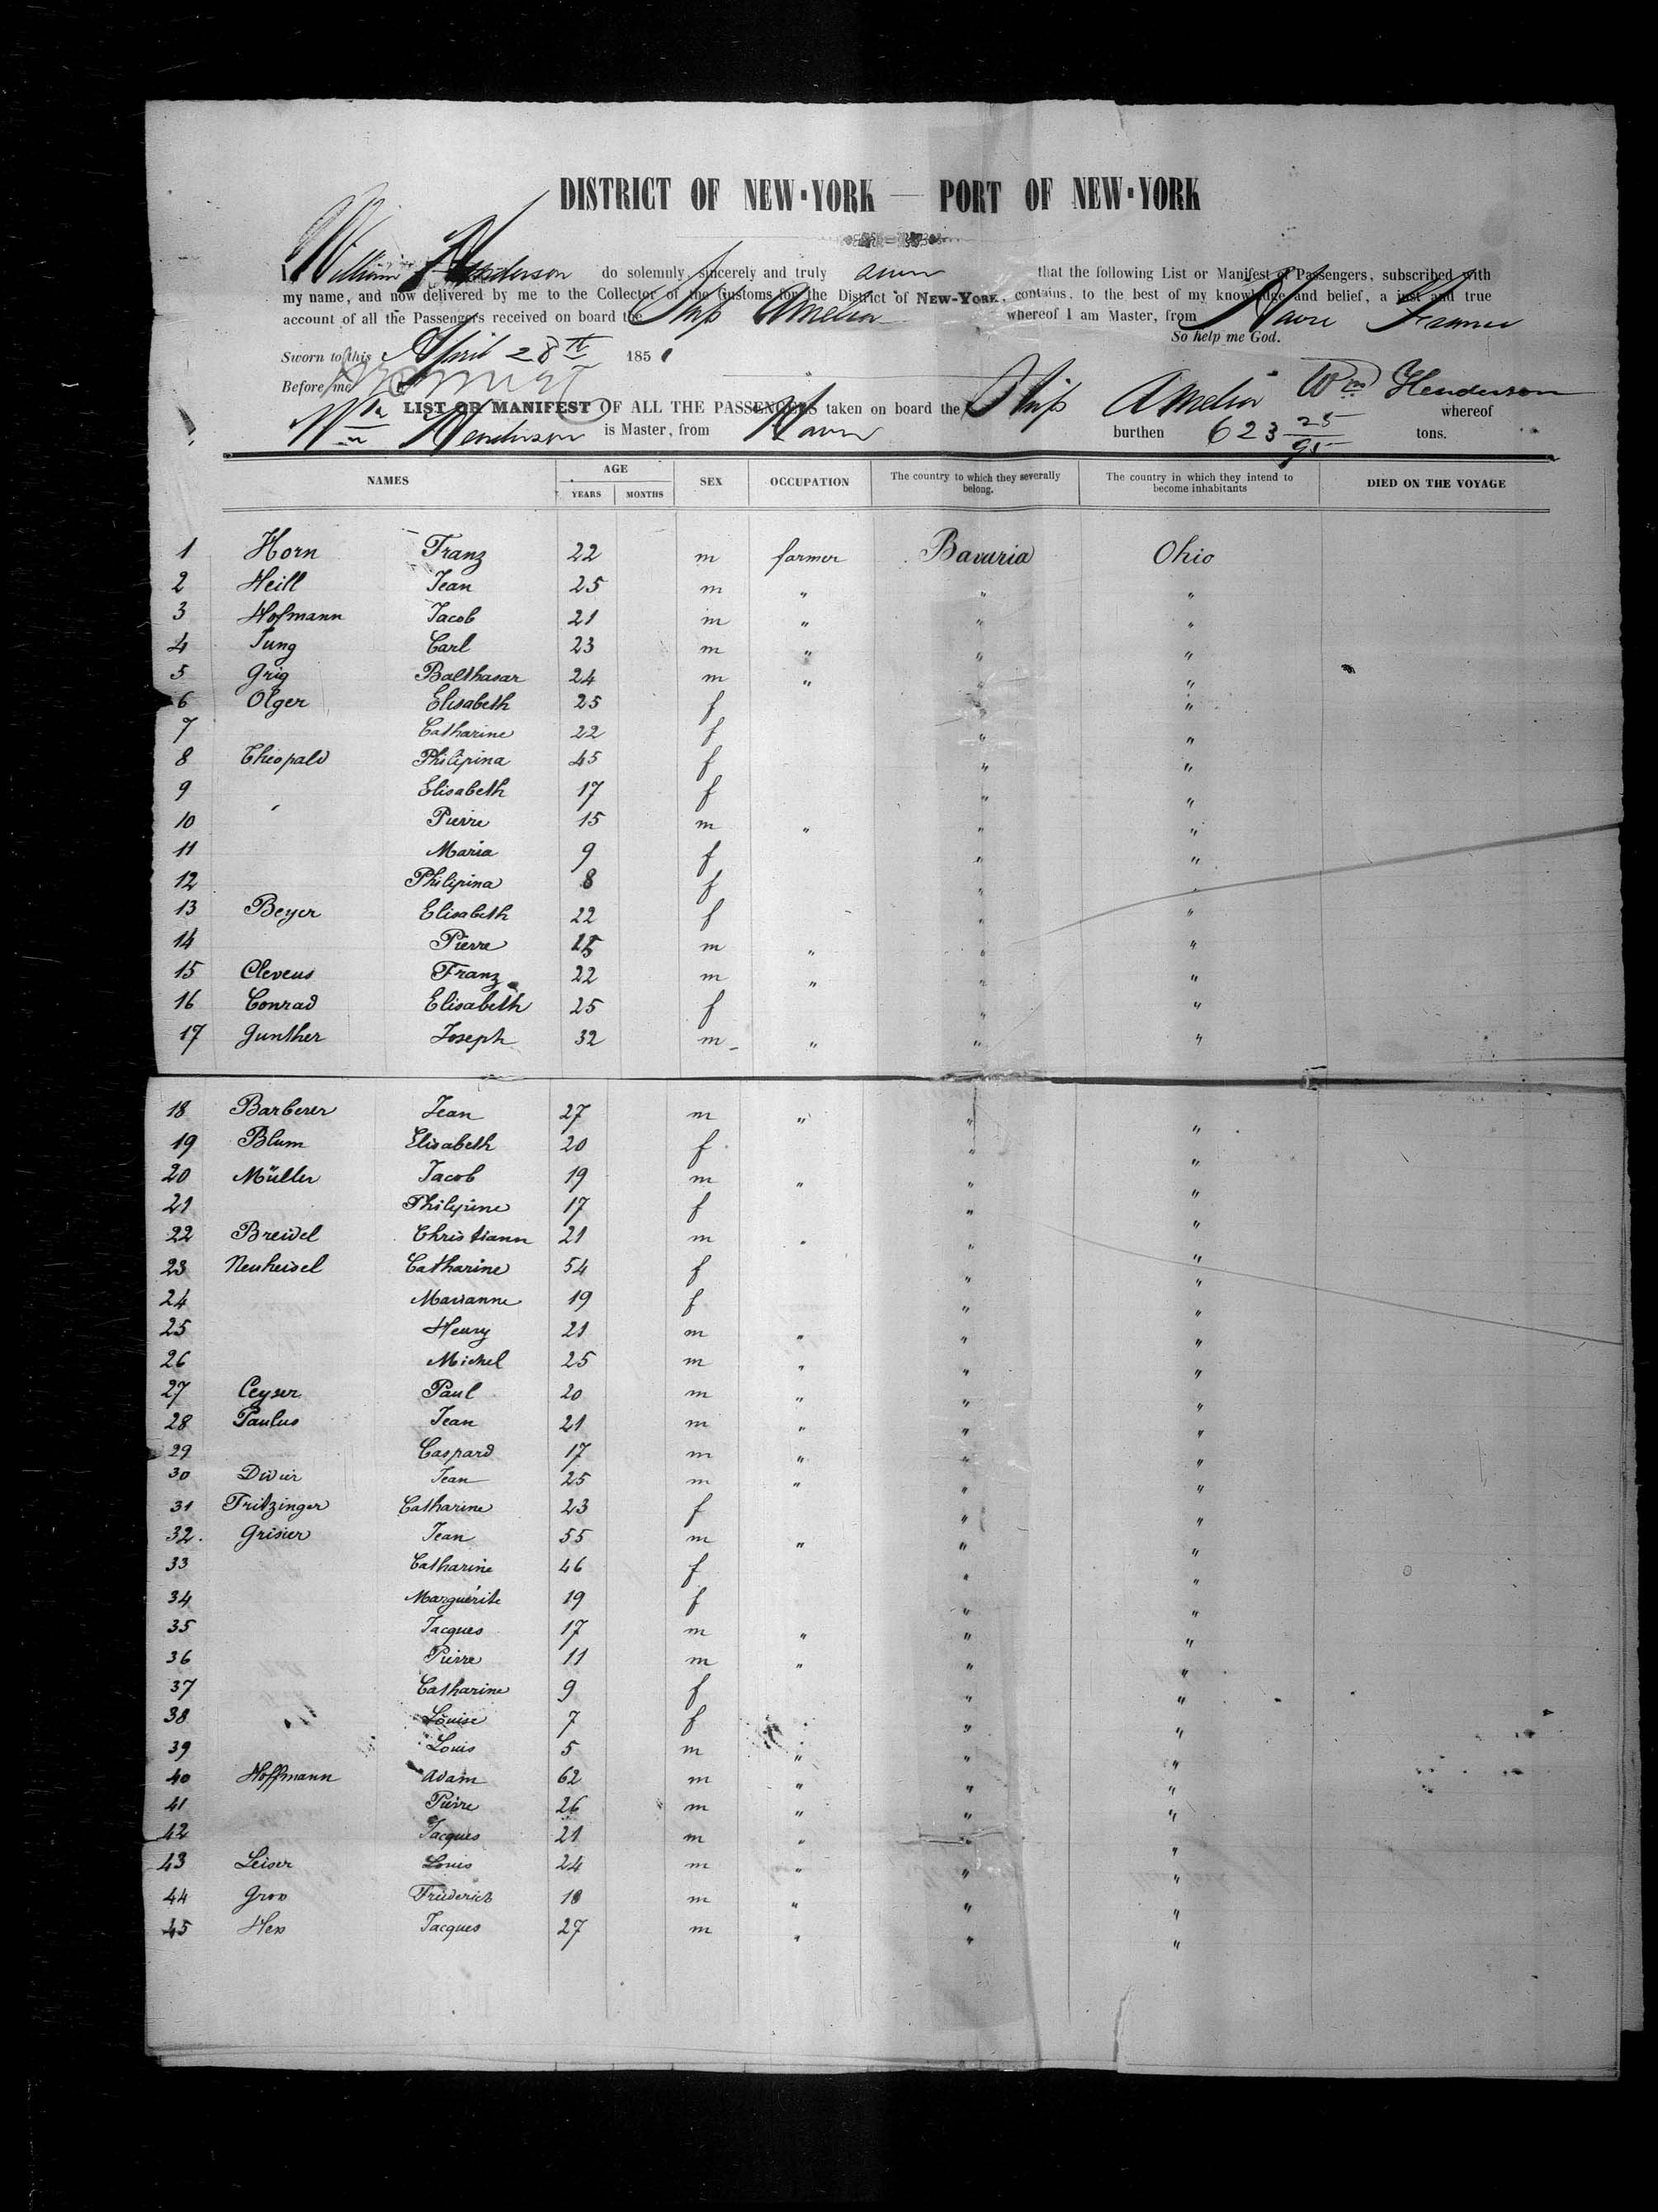 DISTRICT OF NEW-YORK — PORT OF NEW-YORK
I, William Henderson do solemnly, sincerely and truly that the following List or Manifest of Passengers, subscribed with
my name, and now delivered by me to the Collector of the Customs for the District of NEW-YORK, contains, to the best of my knowledge and belief, a just and true
account of all the Passengers received on board the Ship Amelia whereof I am Master, from Havre France
So help me God.
Sworn to this April 28th 1851
Before me
Wm Henderson
LIST OR MANIFEST OF ALL THE PASSENGERS taken on board the Ship Amelia whereof
Wm Henderson is Master, from Havre burthen 623 25/95 tons.
NAMES AGE SEX OCCUPATION The country to which they severally belong. The country in which they intend to become inhabitants DIED ON THE VOYAGE
YEARS MONTHS
1 Horn Franz 22 m farmer Bavaria Ohio
2 Heill Jean 25 m " " "
3 Hofmann Jacob 21 m " " "
4 Jung Carl 23 m " " "
5 Grig Balthasar 24 m " " "
6 Olger Elisabeth 25 f " "
7 Catharine 22 f " "
8 Theopald Philipina 45 f " "
9 Elisabeth 17 f " "
10 Pierre 15 m " " "
11 Maria 9 f " "
12 Philipina 8 f " "
13 Beyer Elisabeth 22 f " "
14 Pierre 25 m " " "
15 Cleveus Franz 22 m " " "
16 Conrad Elisabeth 25 f " "
17 Gunther Joseph 32 m " " "
18 Barberer Jean 27 m " " "
19 Blum Elisabeth 20 f " "
20 Müller Jacob 19 m " " "
21 Philipine 17 f " "
22 Breidel Christiann 21 m " " "
23 Neuheisel Catharine 54 f " "
24 Marianne 19 f " "
25 Henry 21 m " " "
26 Michel 25 m " " "
27 Ceyser Paul 20 m " " "
28 Paulus Jean 21 m " " "
29 Caspard 17 m " " "
30 Jean 25 m " " "
31 Fritzinger Catharine 23 f " "
32. Grisier Jean 55 m " " "
33 Catharine 46 f " "
34 Marguérite 19 f " "
35 Jacques 17 m " " "
36 Pierre 11 m " " "
37 Catharine 9 f " "
38 Louise 7 f " "
39 Louis 5 m " " "
40 Hoffmann Adam 62 m " " "
41 Pierre 26 m " " "
42 Jacques 21 m " " "
43 Leiser Louis 24 m " " "
44 Gros Fréderick 18 m " " "
45 Hess Jacques 27 m " " "